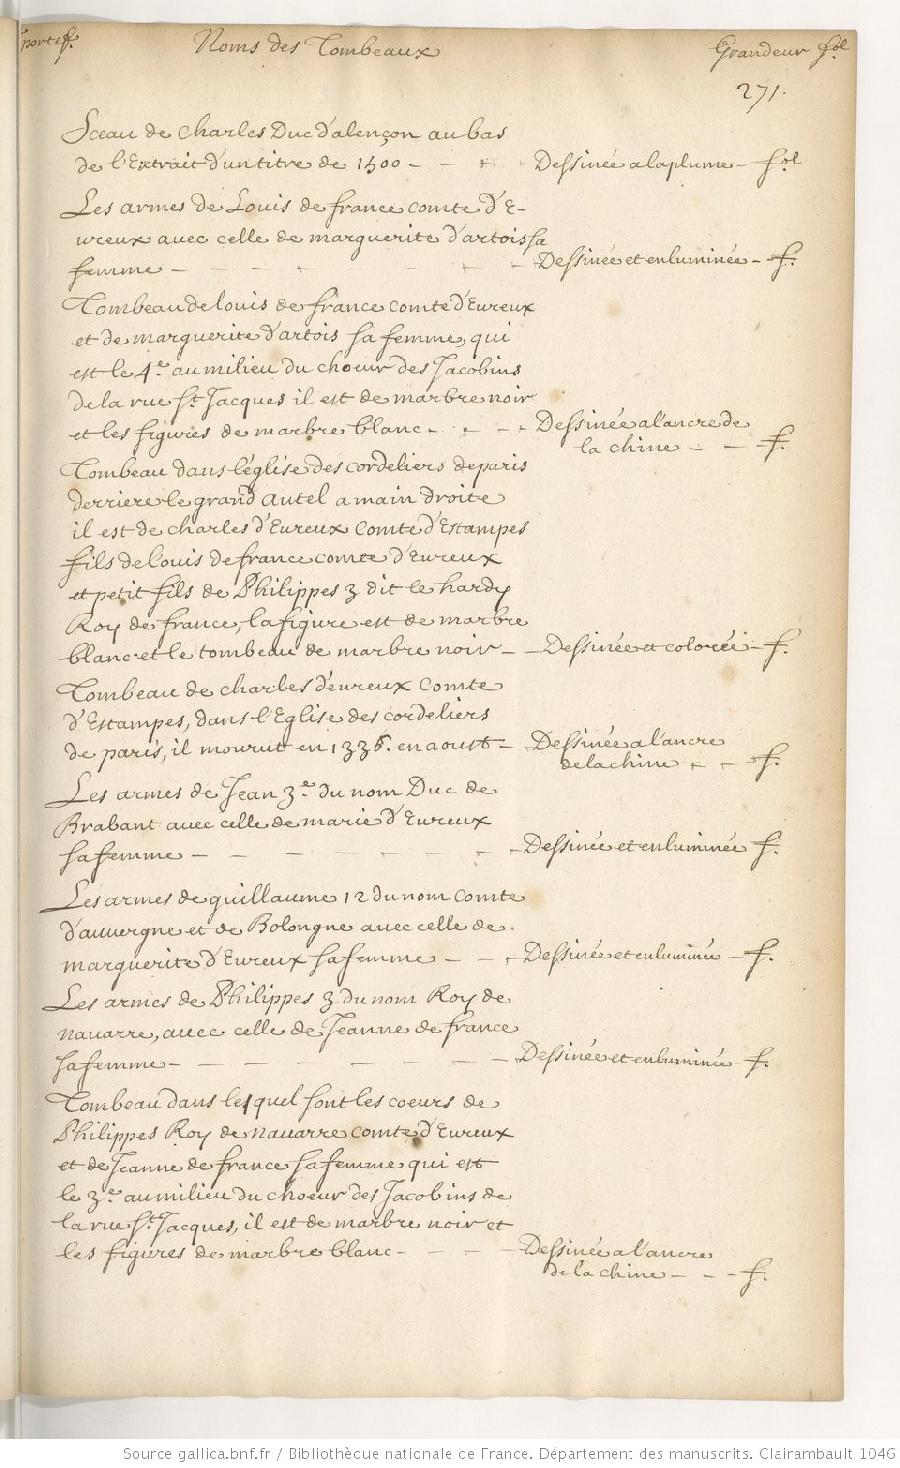 portef.
Noms des Tombeaux
Grandeur fol
271.
Sceau de Charles Duc d'alençon au bas
de l'Extrait d'un titre de 1500 - - - Dessinée a la plume - fol
Les armes de Louis de france comte d'E-
ureux avec celle de marguerite d'artois sa
femme - - - - - Dessinée et enluminée - f.
Tombeau de louis de france comte d'Eureux
et de marguerite d'artois sa femme, qui
est le 4.e au milieu du choeur des Jacobins
de la rue St. Jacques il est de marbre noir
et les figures de marbre blanc - - - - Dessinée a l'ancre de
la chine - - f.
Tombeau dans l'église des cordeliers de paris
derriere le grand autel a main droite
il est de charles d'Eureux comte d'Estampes
fils de louis de france comte d'Eureux
et petit fils de Philippes 3 dit le hardy
Roy de france, la figure est de marbre
blanc et le tombeau de marbre noir - - Dessinée et colorée - f.
Tombeau de charles d'eureux comte
d'Estampes, dans l'Eglise des cordeliers
de paris, il mourut en 1336. en aoust - Dessinée a l'ancre
de la chine - - f.
Les armes de Jean 3.e du nom Duc de
Brabant avec celle de marie d'Eureux
sa femme - - - - - - Dessinée et enluminée f.
Les armes de guillaume 12 du nom comte
d'auuergne et de Bolongne avec celle de
marguerite d'Eureux sa femme - - - Dessiné et enluminée - f.
Les armes de Philippes 3 du nom Roy de
nauarre, avec celle de Jeanne de france
sa femme - - - - - - Dessinée et enluminée - f.
Tombeau dans lesquel sont les coeurs de
Philippes Roy de nauarre comte d'Eureux
et de Jeanne de france sa femme qui est
le 3.e au milieu du choeur des Jacobins de
la rue St. Jacques, il est de marbre noir et
les figures de marbre blanc - - - - Dessinée a l'ancre
de la chine - - - f.
Source gallica.bnf.fr / Bibliothèque nationale de France. Département des manuscrits. Clairambault 1046